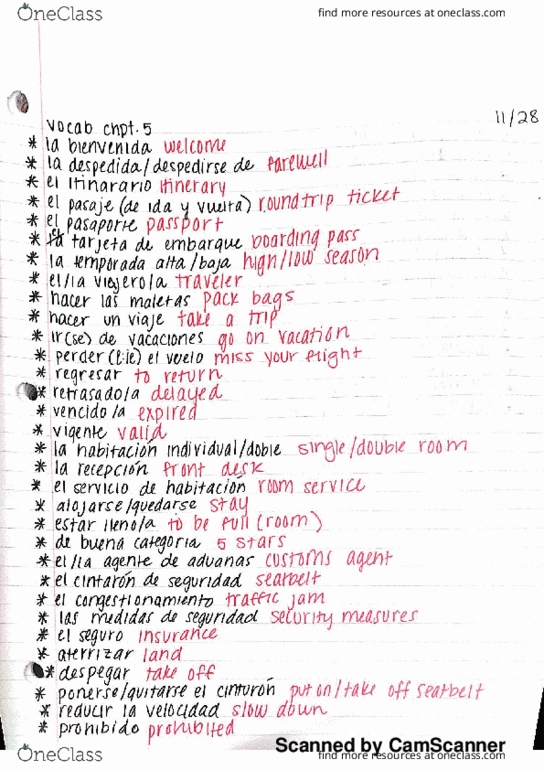 OneClass find more resources at oneclass.com
11/28
Vocab chpt. 5
* la bienvenida welcome
* la despedida/despedirse de farewell
* el itinarario itinerary
* el pasaje (de ida y vuelta) roundtrip ticket
* el pasaporte passport
* la tarjeta de embarque boarding pass
* la temporada alta/baja high/low season
* el/la viejero/a traveler
* hacer las maletas pack bags
* hacer un viaje take a trip
* ir(se) de vacaciones go on vacation
* perder (e:ie) el vuelo miss your flight
* regresar to return
* retrasado/a delayed
* vencido/a expired
* vigente valid
* la habitación individual/doble single/double room
* la recepción front desk
* el servicio de habitación room service
* alojarse/quedarse stay
* estar lleno/a to be full (room)
* de buena categoria 5 stars
* el/la agente de aduanas customs agent
* el cintarón de seguridad seatbelt
* el congestionamiento traffic jam
* las medidas de seguridad security measures
* el seguro insurance
* aterrizar land
* despegar take off
* ponerse/quitarse el cinturón put on/take off seatbelt
* reducir la velocidad slow down
* prohibido prohibited
Scanned by CamScanner
OneClass find more resources at oneclass.com